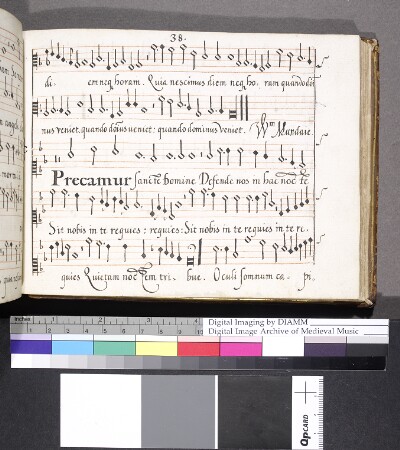 38.
di. em neq horam. Quia nescimus diem neq ho. ram quando do
nus veniet. quando dominus veniet: quando dominus veniet. Wm Mundaie.
Precamur sancte Domine Defende nos in hac nocte
Sit nobis in te requies: requies: Sit nobis in te requies in te re.
quies Quietam noctem tri. bue. Oculi somnum ca. pi.
inches 1 2 3 4
Digital Imaging by DIAMM
Digital Image Archive of Medieval Music
QPCARD